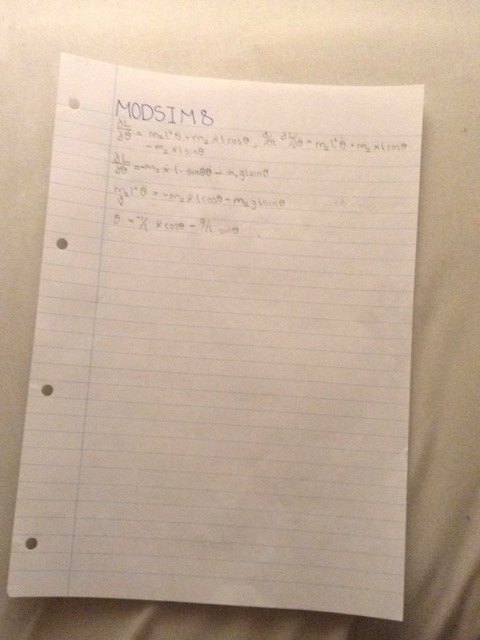 MODSIM8
∂L/∂θ̇ = m₂l²θ̇ + m₂ẋlcosθ, d/dt ∂L/∂θ̇ = m₂l²θ̈ + m₂ẍlcosθ
- m₂ẋlsinθ
∂L/∂θ = -m₂ẋl sinθθ̇ - m₂glsinθ
m₂l²θ̈ = -m₂ẍlcosθ - m₂glsinθ
θ̈ = ẍcosθ - g/l sinθ